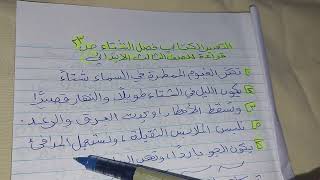 التعبير الكتابي فصل الشتاء ص ٢٣
قراءة للصف الثالث الابتدائي
تكثر الغيوم الممطرة في السماء شتاءً
يكون الليل في الشتاء طويلاً، والنهار قصيراً
وتسقط الأمطار البرق والرعد.
نلبس الملابس الثقيلة، ونشعل المدافئ
يكون الجو بارداً،